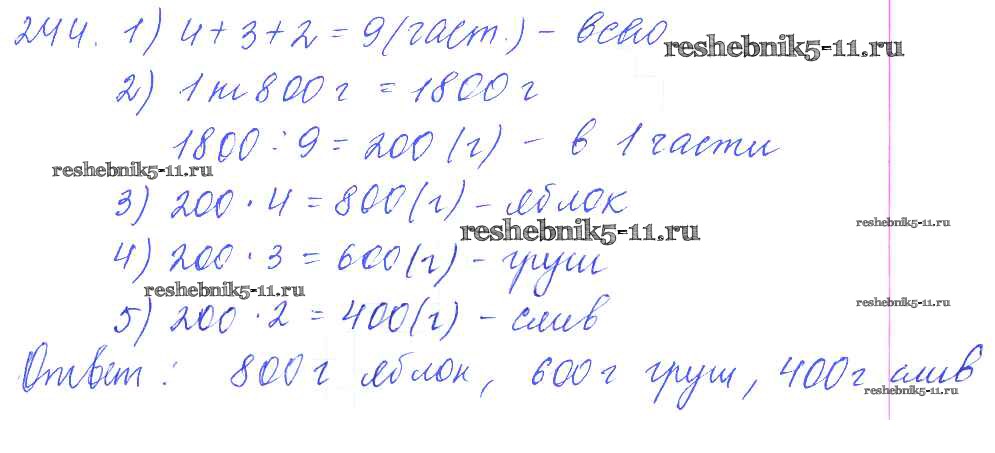 244. 1) 4 + 3 + 2 = 9 (част.) - всего
reshebnik5-11.ru
2) 1 кг 800 г = 1800 г
1800 : 9 = 200 (г) - в 1 части
reshebnik5-11.ru
3) 200 · 4 = 800 (г) - яблок
reshebnik5-11.ru
reshebnik5-11.ru
4) 200 · 3 = 600 (г) - груш
reshebnik5-11.ru
reshebnik5-11.ru
5) 200 · 2 = 400 (г) - слив
Ответ: 800 г яблок, 600 г груш, 400 г слив
reshebnik5-11.ru